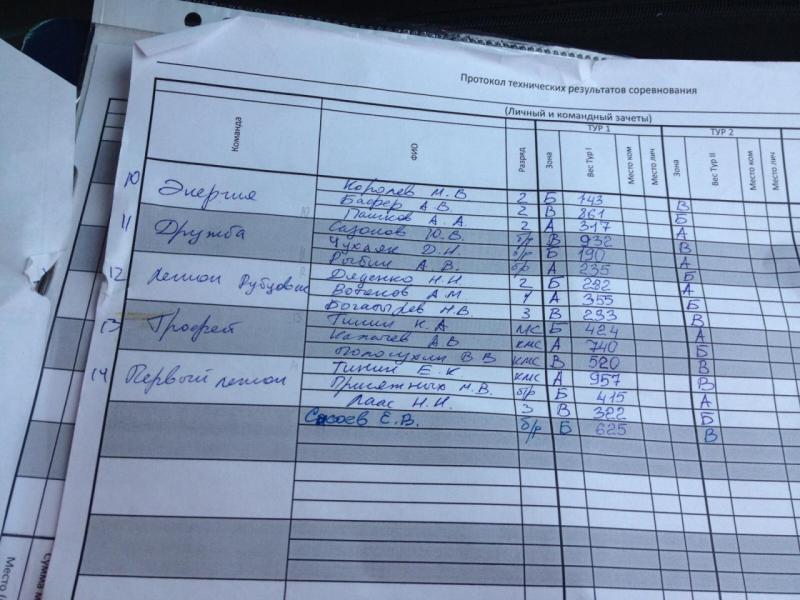 Протокол технических результатов соревнования
(Личный и командный зачеты)
Команда ФИО Разряд ТУР 1 ТУР 2
Зона Вес Тур I Место ком Место лич Зона Вес Тур II Место ком Место лич
10 Энергия Королев М.В 2 Б 143 В
Бафер А.В. 2 В 861 Б
Пашков А.А. 2 А 317 А
11 Дружба Сазонов Ю.В. б/р В 932 В
Чухляк Д.Н. б/р Б 190 А
Рыбин А.В. б/р А 235 Б
12 Легион Рубцовск Диденко Н.Н 2 Б 282 А
А.М. 1 А 355 Б
Богатырев Н.В. 3 В 233 В
13 Трофей Тинин К.А МС Б 424 А
АВ кмс А 740 Б
В.В кмс В 520 В
14 Первый легион Тинин Е.К кмс А 957 В
Присяжных М.В. б/р Б 415 А
Лаас Н.Н. 3 В 322 Б
Е.В. б/р Б 625 В
Сумма м
Место (